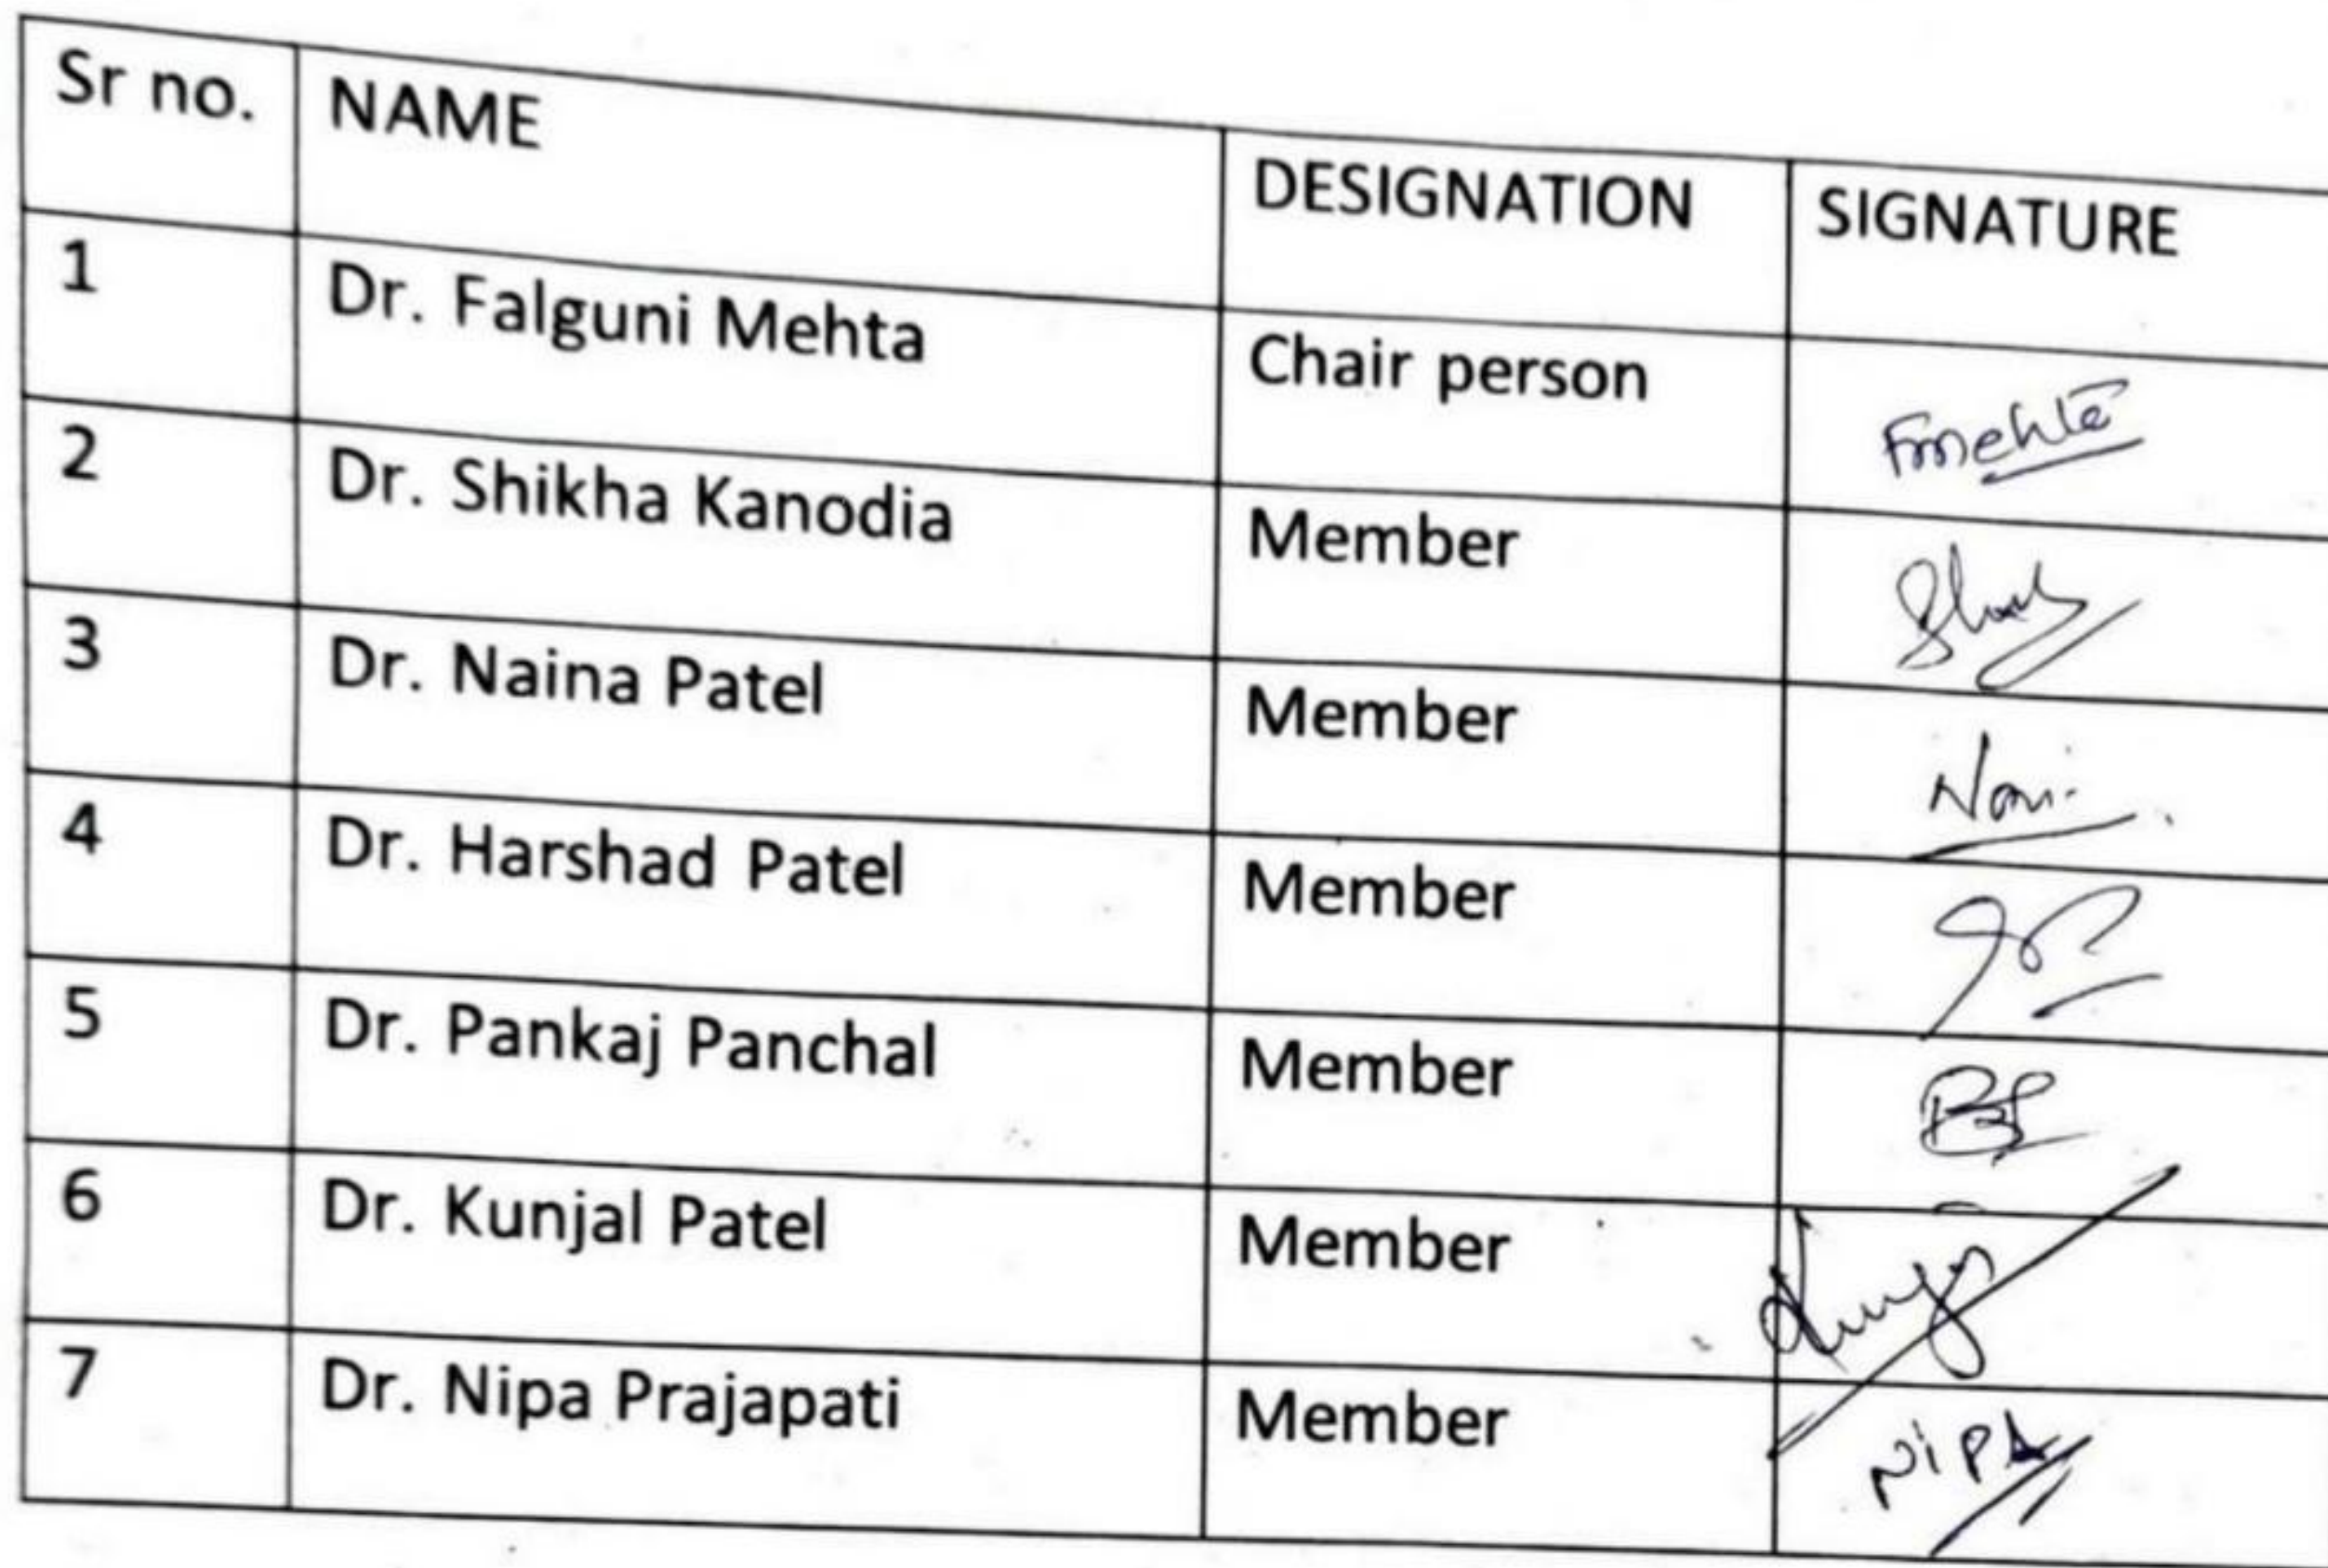 Sr no. NAME DESIGNATION SIGNATURE
1 Dr. Falguni Mehta Chair person Fmehta
2 Dr. Shikha Kanodia Member
3 Dr. Naina Patel Member
4 Dr. Harshad Patel Member
5 Dr. Pankaj Panchal Member
6 Dr. Kunjal Patel Member
7 Dr. Nipa Prajapati Member Nipa